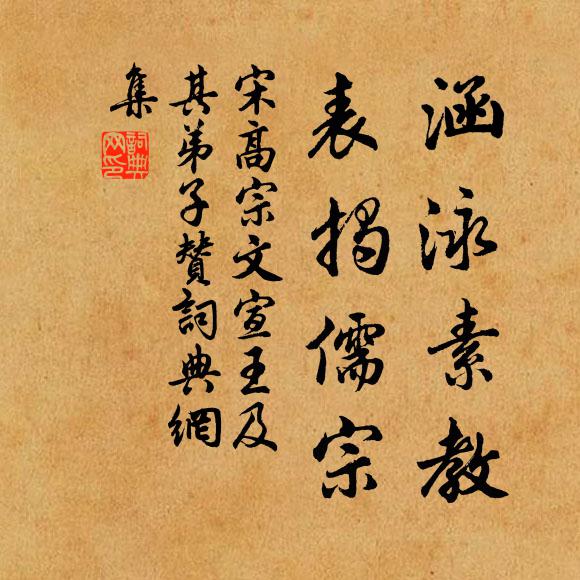 涵泳素教
表揭儒宗
宋高宗文宣王及
其弟子贊詞典網
集
詞典網印